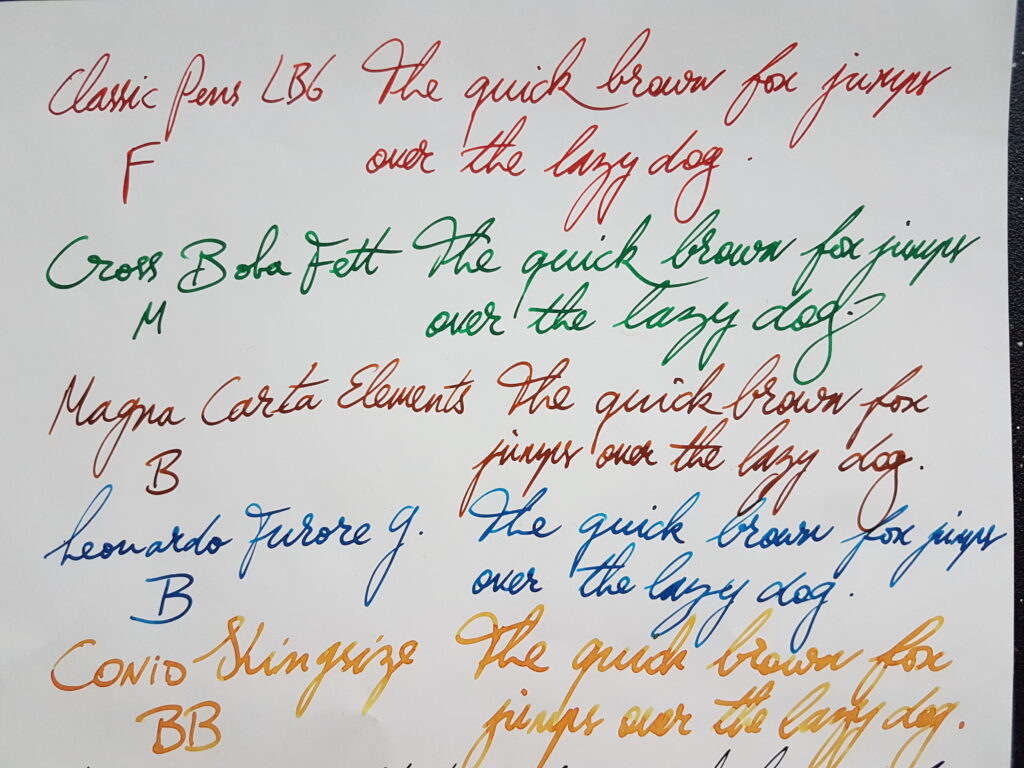 Classic Pens LB6 The quick brown fox jumps
F over the lazy dog.
Cross Boba Fett The quick brown fox jumps
M over the lazy dog.
Magna Carta Elements The quick brown fox
B jumps over the lazy dog.
Leonardo Furore G. The quick brown fox jumps
B over the lazy dog.
Conid Kingsize The quick brown fox
BB jumps over the lazy dog.